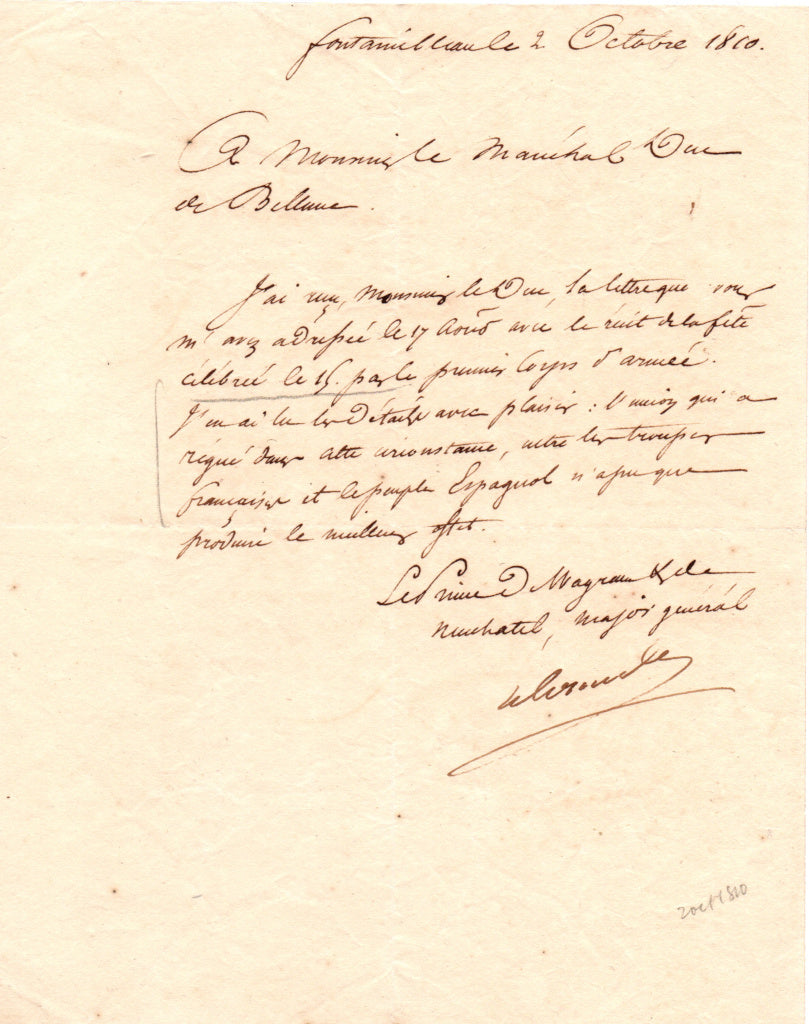 fontainebleau le 2 Octobre 1810.
A Monsieur le Maréchal Duc
de Bellune.
J'ai reçu, Monsieur le Duc, la lettre que vous
m'avez adressée le 17 Août avec le récit de la fête
célébrée le 15. par le premier Corps d'armée.
J'en ai lu les Détails avec plaisir : l'union qui a
régné dans cette circonstance, entre les troupes
françaises et le peuple Espagnol n'a pu que
produire le meilleur effet.
Le Prince De Wagram & de
Neuchatel, major général
Alexandre
2 oct 1810